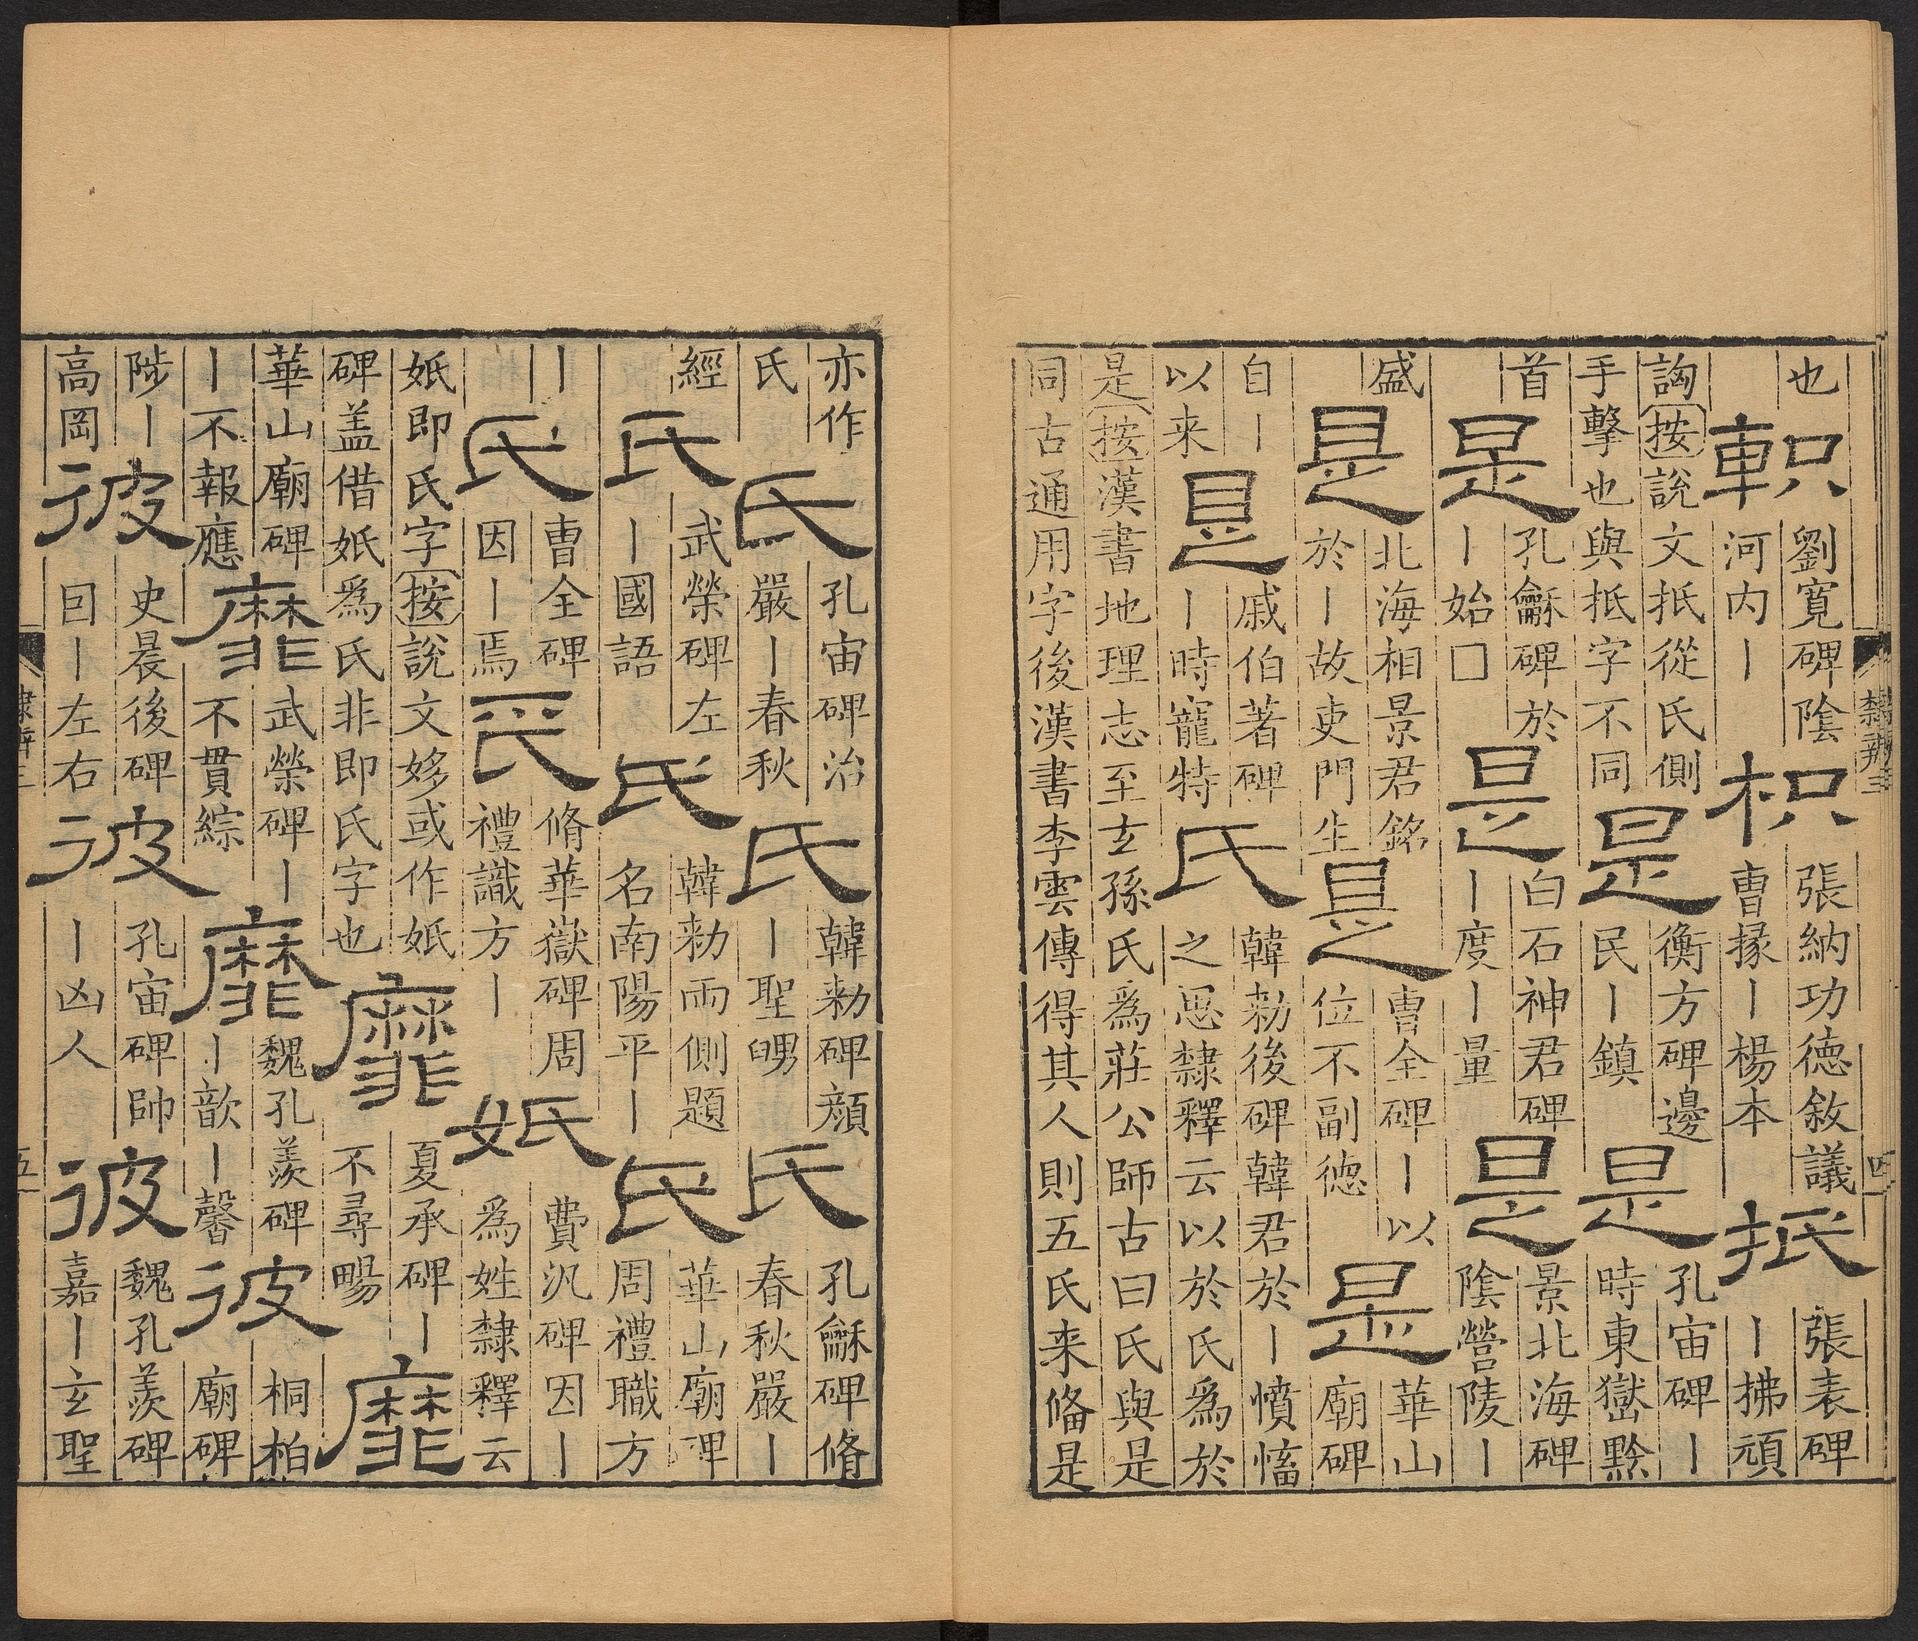 也軹劉寬碑陰河内丨枳張納功德敘議曹掾丨楊本抵張表碑丨拂頑
訩按說文抵從氏側手擊也與抵字不同是衡方碑邊民丨鎮是孔宙碑丨時東嶽黔
首是孔龢碑於丨始□是白石神君碑丨度丨量是景北海碑陰營陵丨
盛是北海相景君銘於丨故吏門生是曹全碑丨以位不副德是華山廟碑
自丨以来是戚伯著碑丨時寵特氏韓勑後碑韓君於丨憤慉之思隸釋云以於氏爲於
是按漢書地理志至玄孫氏爲莊公師古曰氏與是同古通用字後漢書李雲傳得其人則五氏来俻是
隸辨三
四
亦作氏氏孔宙碑治嚴丨春秋氏韓勑碑顔丨聖舅氏孔龢碑脩春秋嚴丨
經氏武榮碑左丨國語氏韓勑兩側題名南陽平丨氏華山廟碑周禮職方
丨氏曹全碑因丨焉氏脩華嶽碑周禮識方丨𡛜費汎碑因丨爲姓隸釋云
𡛜即氏字按說文姼或作𡛜碑盖借𡛜爲氏非即氏字也靡夏承碑丨不尋暢靡
華山廟碑丨不報應靡武榮碑丨不貫綜靡魏孔羨碑丨歆丨馨彼桐柏廟碑
陟丨高岡彼史晨後碑囘丨左右彼孔宙碑帥丨凶人彼魏孔羨碑嘉丨玄聖
隸辨三
五